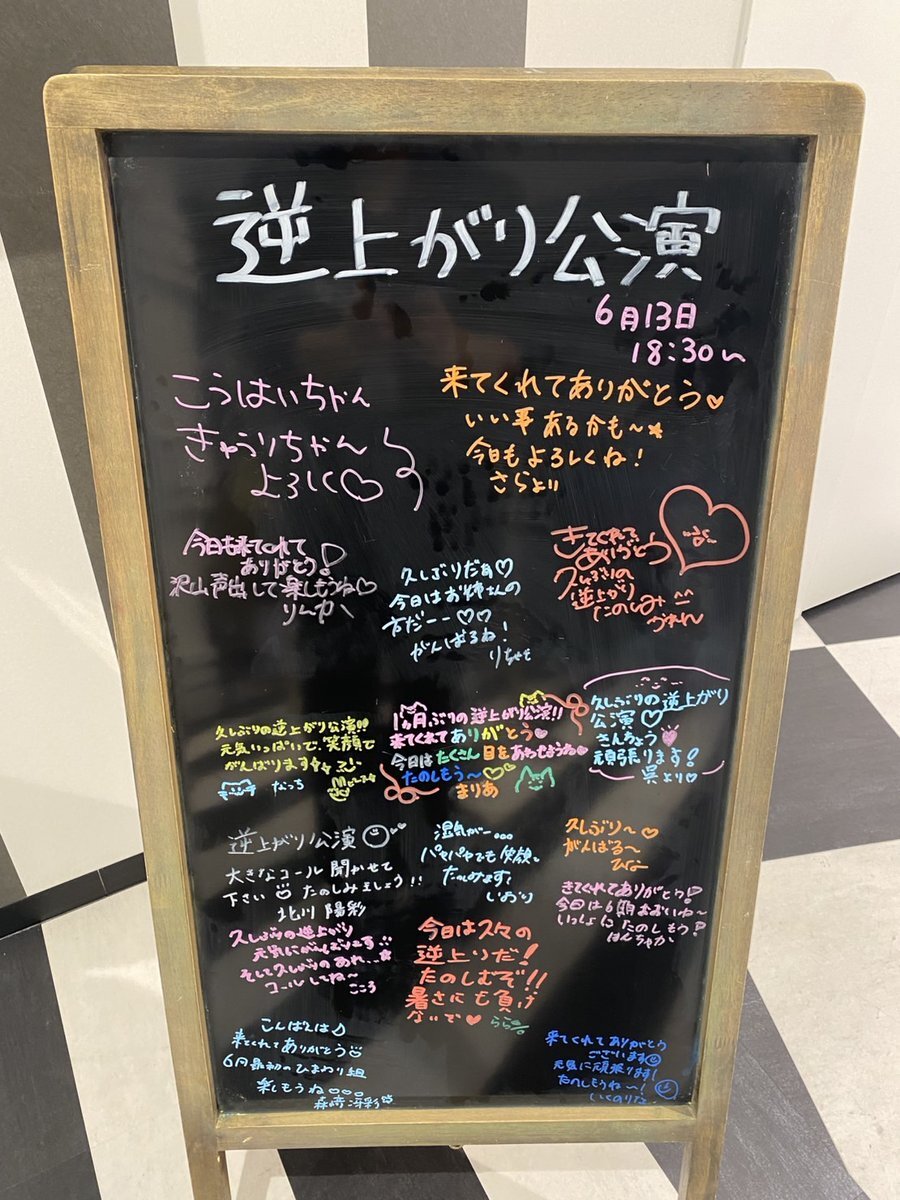 逆上がり公演
6月13日
18:30〜
こうはいちゃん
きゅうりちゃん
よろしく♡
来てくれてありがとう♡
いい事あるかも〜★
今日もよろしくね!
さらより
今日も来てくれて
ありがとう!
沢山声出して楽しもうね♡
りんか
久しぶりだぁ♡
今日はお姉さんの
方だーー♡♡
がんばるね!
きてくれて
ありがとう
久しぶりの
逆上がり
たのしみ^^
久しぶりの逆上がり公演!!
元気いっぱいで、笑顔で
がんばります
なっち
1ヵ月ぶりの逆上がり公演!!
来てくれてありがとう♡
今日はたくさん目をあわせようね♡
たのしもう〜♡♡
まりあ
久しぶりの逆上がり
公演♡
きんちょう
頑張ります!
呉より♡
逆上がり公演
大きなコール聞かせて
下さい たのしみましょう!!
北川 陽彩
湿気がー...
パヤパヤでも笑顔で
たのしみます!
いおり
久しぶり〜♡
がんばる〜
ひな
きてくれてありがとう!
今日は6期おおいね〜
いっしょにたのしもう!
はんちゃか
久しぶりの逆上がり
元気にがんばります
そして久しぶりのあれ...
コールしてね〜
こころ
今日は久々の
逆上りだ!
たのしむぞ!!
暑さにも負け
ないで♥
らら
こんばんは♪
来てくれてありがとう
6月最初のひまわり組
楽しもうね
森﨑冴彩
来てくれてありがとう
ございます
元気に頑張ります!
たのしもうね〜!
いくのりな